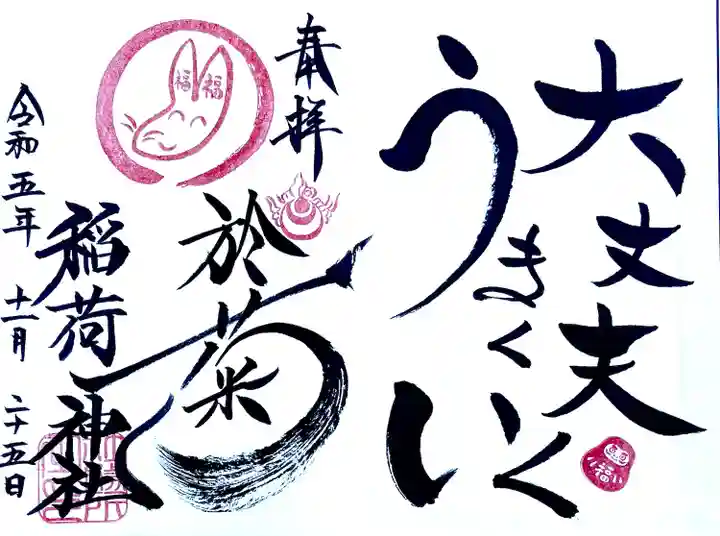 大丈夫
うまくいく
福
奉拝
福福
於菊
稲荷神社
令和五年 十一月 二十五日